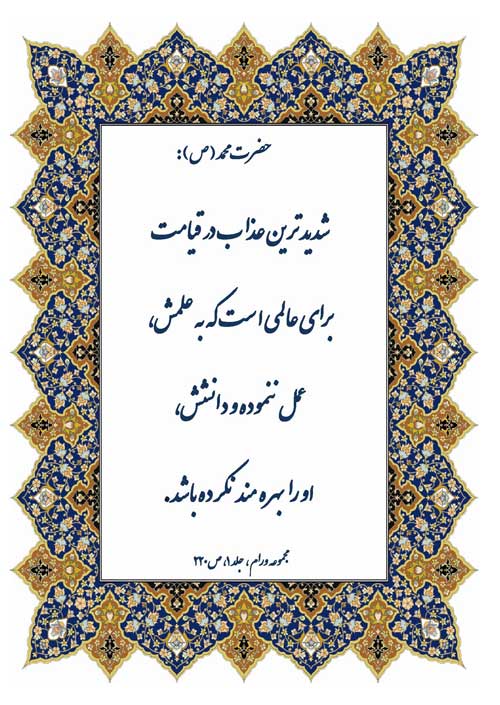 حضرت محمد (ص):
شدیدترین عذاب در قیامت
برای عالمی است که به علمش،
عمل ننموده و دانشش،
او را بهره مند نکرده باشد.
مجموعه ورام، جلد ۱، ص ۲۲۰